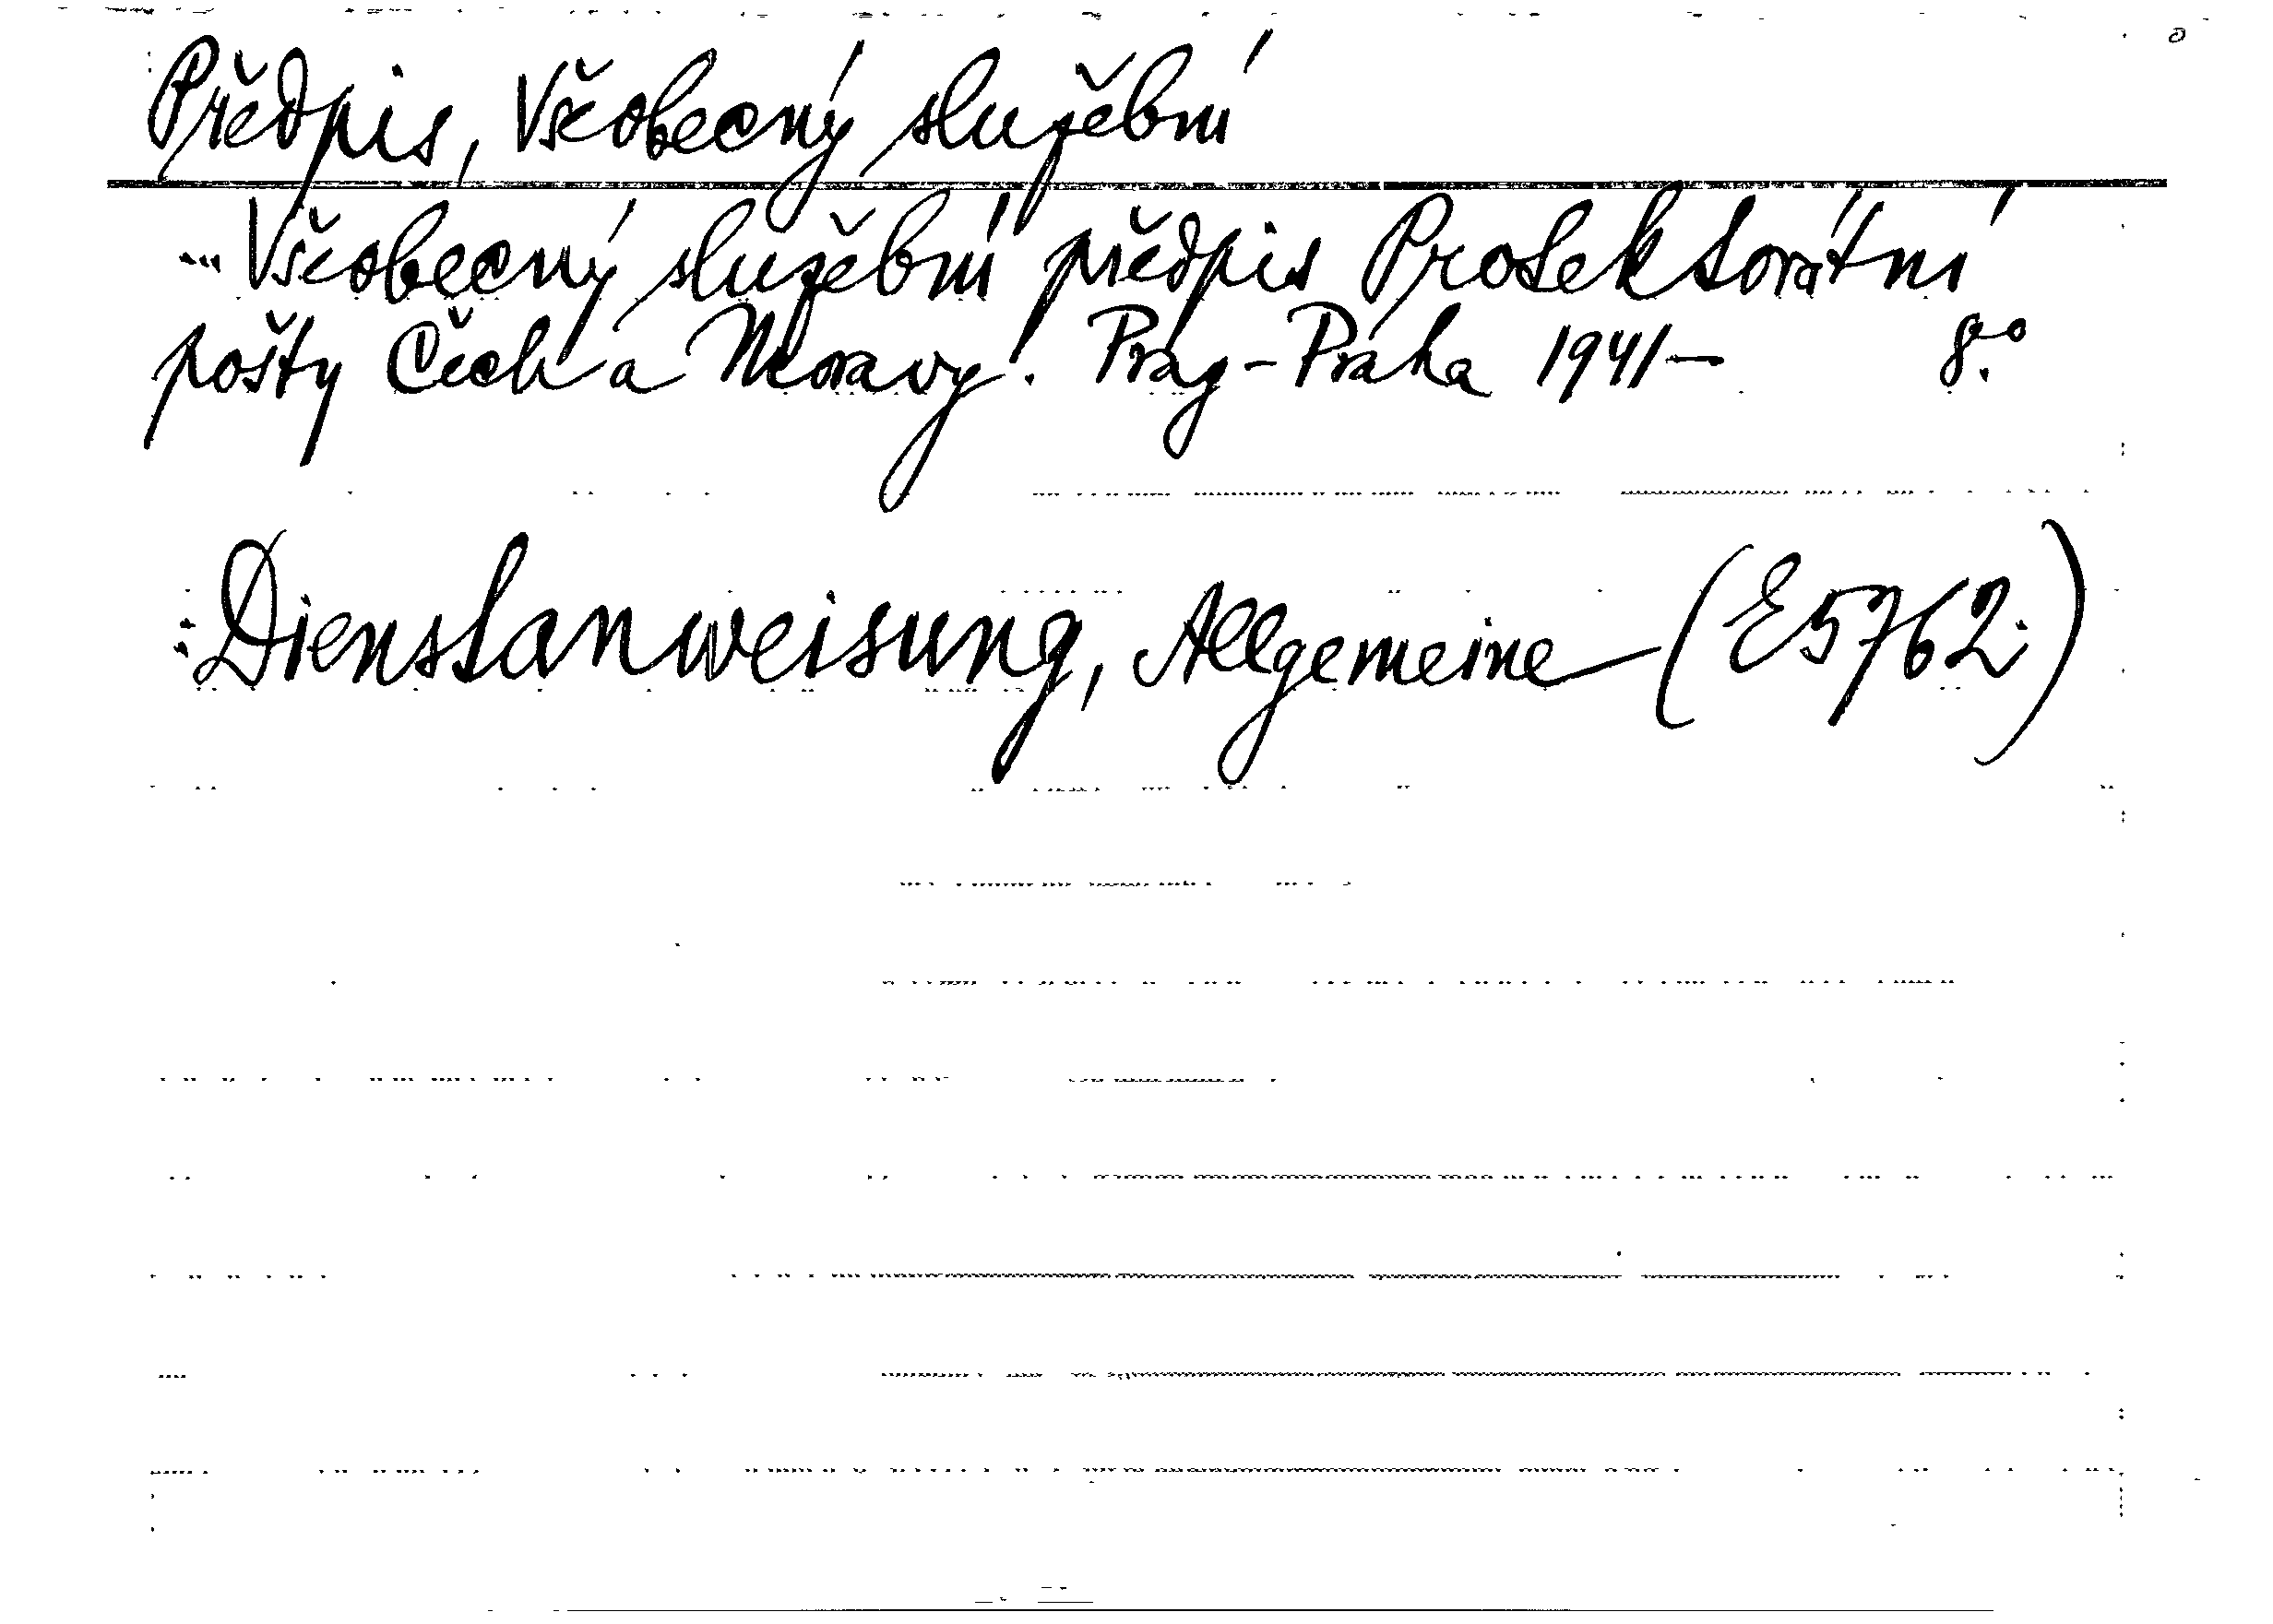 Předpis, Všeobecný služební
... Všeobecný služební předpis Protektorátní
pošty Čech a Moravy. Prag-Praha 1941– 8.°
: Dienstanweisung, Allgemeine (E5762.)